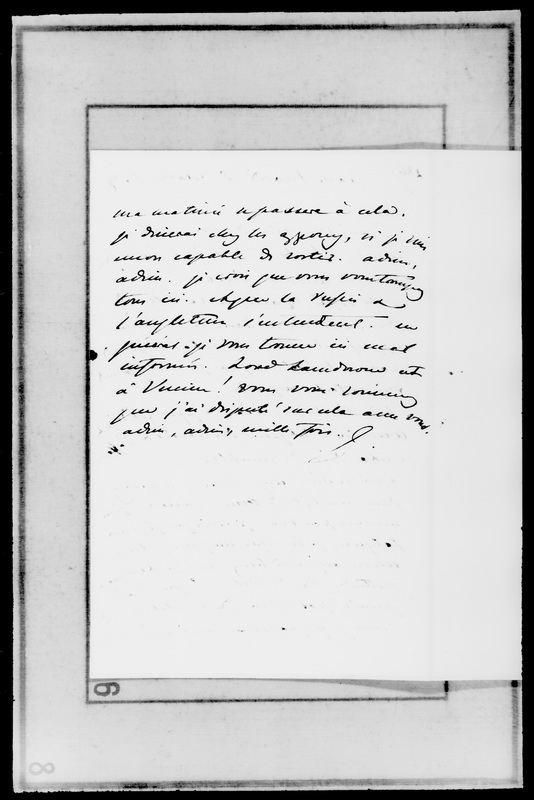 ma matinée se passera à cela.
je dinerai chez les appony, si je suis
encore capable de sortir. adieu,
adieu. je crois que vous vous trompez
tous ici. et que la Russie et
l'angleterre s'entendent. en
général je vous trouve ici mal
informés. Lord Lansdowne est
à Vienne! vous vous souvenez
que j'ai disputé sur cela avec vous.
adieu, adieu, mille fois.
9
8